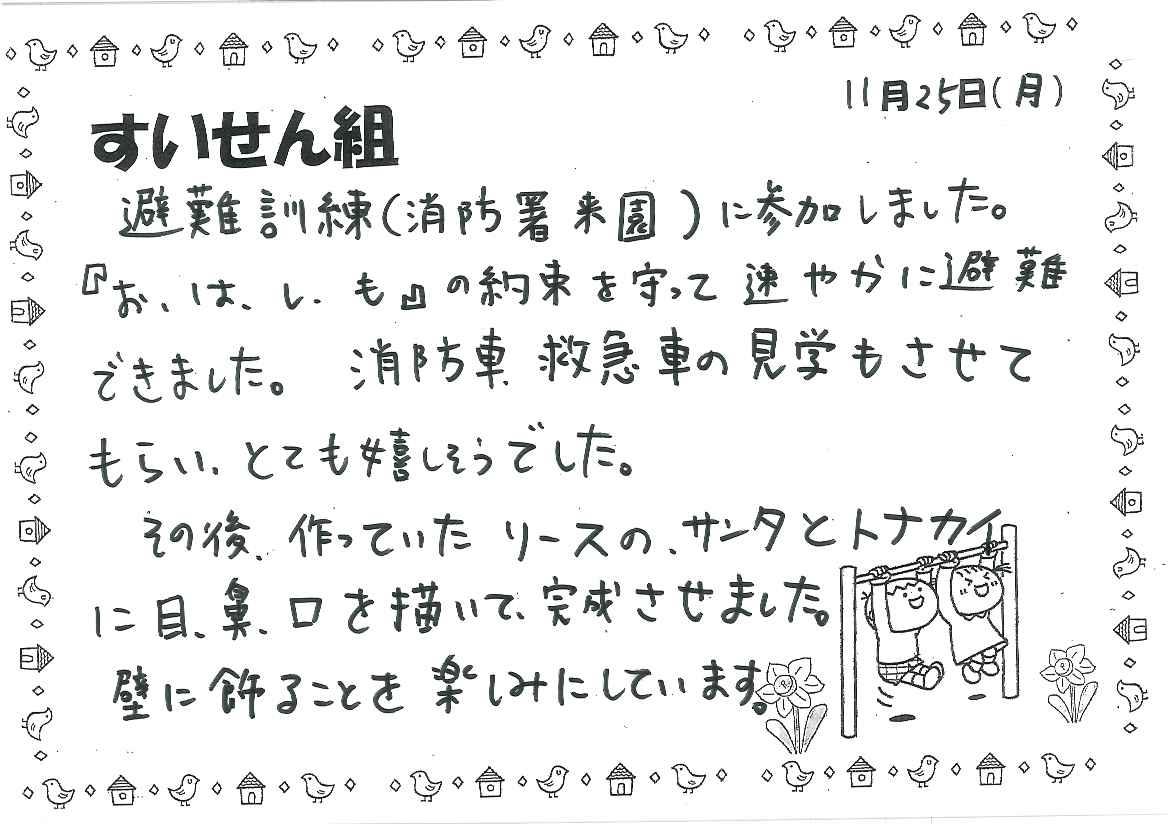 11月25日(月)
すいせん組
避難訓練(消防署来園)に参加しました。
『お、は、し、も』の約束を守って速やかに避難
できました。 消防車、救急車の見学もさせて
もらい、とても嬉しそうでした。
その後、作っていたリースの、サンタとトナカイ
に目、鼻、口を描いて、完成させました。
壁に飾ることを楽しみにしています。